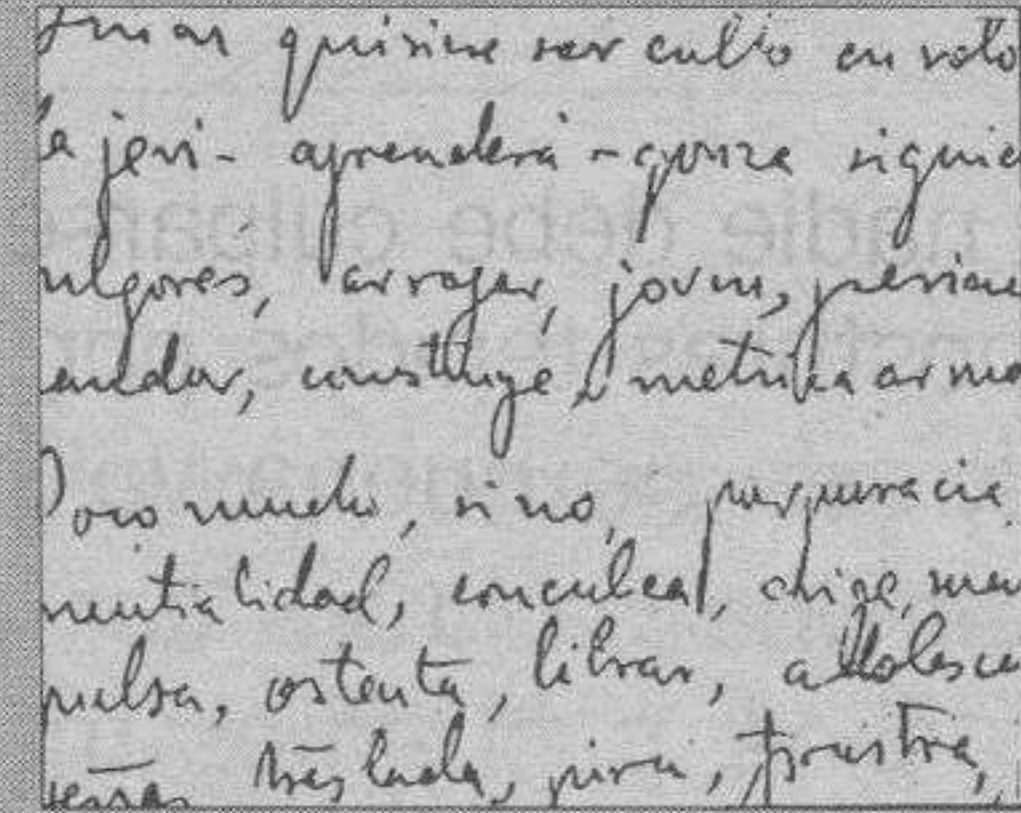 quisiere ser culto en solo
la jeri- aprenderá -gonza siguie
ulgores, arrogar, joven, presien
andor, construye, métrica armo
Poco mucho, si no, purpuracia
neutralidad, conculca, erige, men
pulsa, ostenta, librar, adolesce
señas traslada, pira, frustra,